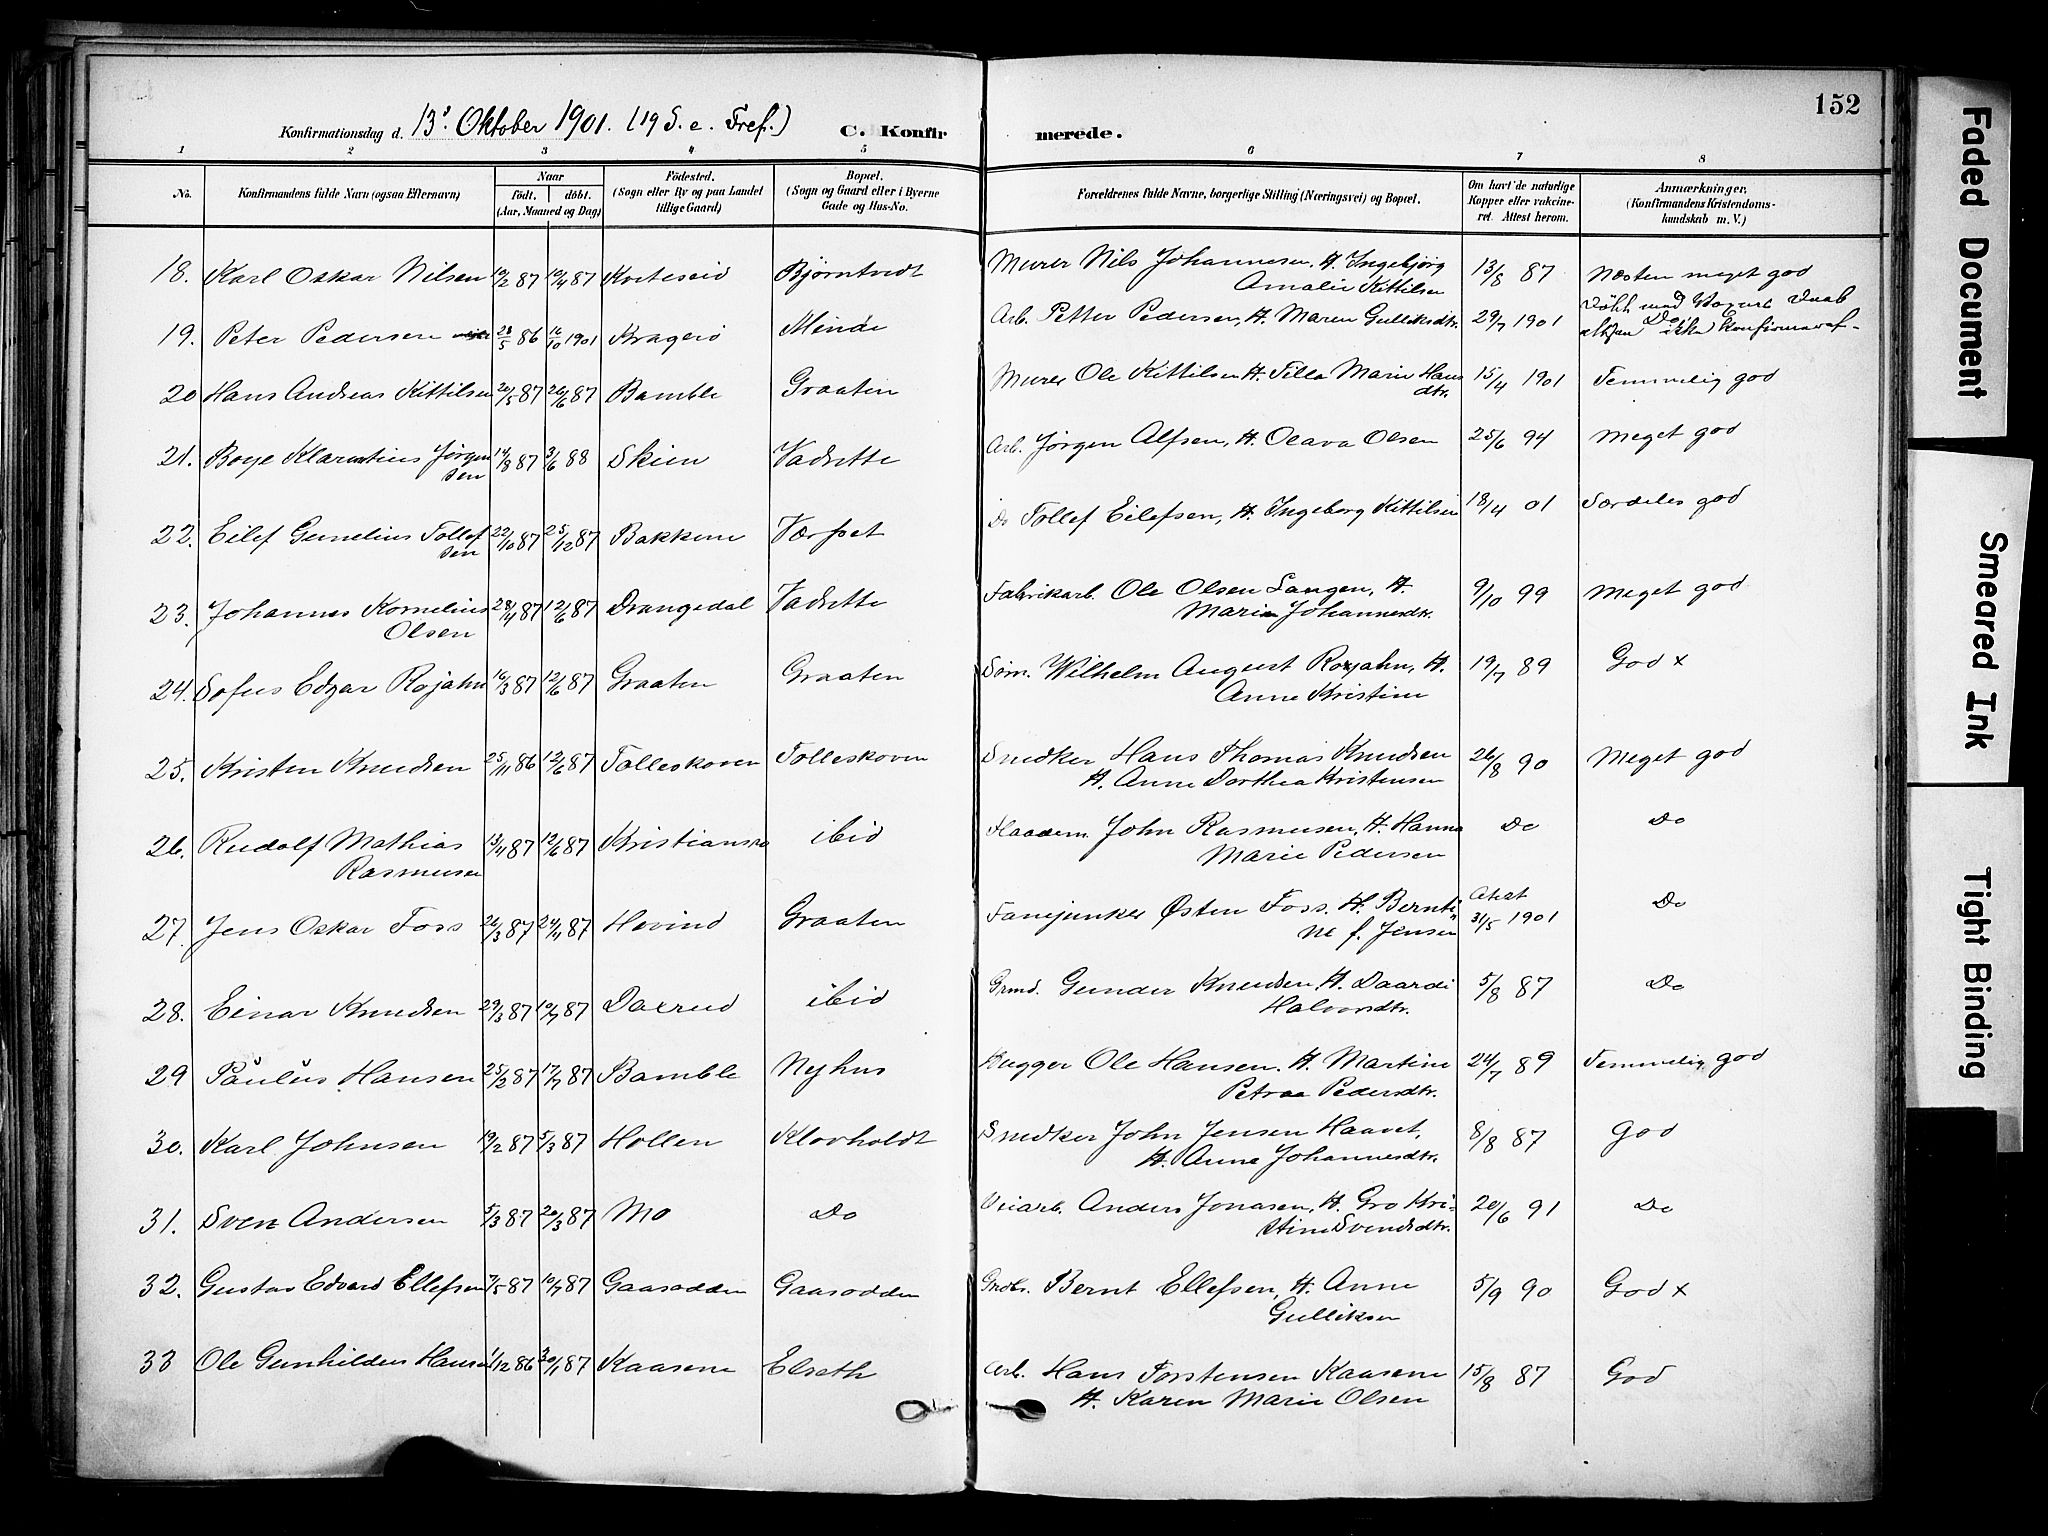 152
Konfirmationsdag d. 13de Oktober 1901. (19 S. e. Tref.) C. Konfirmerede.
1 2 3 4 5 6 7 8
No. Konfirmandens fulde Navn (ogsaa Efternavn) Naar født. døbt. (Aar, Maaned og Dag) Fødested. (Sogn eller By og paa Landet tillige Gaard) Bopæl. (Sogn og Gaard eller i Byerne Gade og Hus-No. Forældrenes fulde Navne, borgerlige Stilling (Næringsvei) og Bopæl. Om havt de naturlige Kopper eller vakcineret. Attest herom. Anmærkninger. (Konfirmandens Kristendomskundskab m. V.)
18. Karl Oskar Nilsen 19/2 87 10/4 87 Kviteseid Bjørntvedt Murer Nils Johannesen, H. Ingebjørg 13/8 87 Næsten meget god
Amalie Kittilsen
19. Peter Pedersen 28/5 86 16/10 1901 Kragerø Minde Arb. Petter Pedersen, H. Maren Gulliksdtr. 29/7 1901
20 Hans Andreas Kittilsen 20/5 87 26/6 87 Bamble Graaten Murer Ole Kittilsen H. Tilla Marie Hans 15/4 1901 Temmelig god
dtr.
21. Boye Klarentius Jørgen 14/8 87 3/6 88 Skien Vadrette Arb. Jørgen Alfsen, H. Olava Olsen 25/6 94 Meget god
sen
22. Eilef Gunelius Tollef 22/10 87 25/12 87 Bakken Værpet Do Tollef Eilefsen, H. Ingeborg Kittilsen 18/4 01 Særdeles god
sen
23. Johannes Kornelius 28/4 87 12/6 87 Drangedal Vadrette Fabrikarb. Ole Olsen Langen, H. 9/10 99 Meget god
Olsen Marie Johannesdtr.
24. Sofus Edgar Rojahn 16/3 87 12/6 87 Graaten Graaten Søm. Wilhelm August Rojahn, H. 19/7 89 God x
Anne Kristine
25. Kristen Knudsen 25/11 86 12/6 87 Tolleskoven Tolleskoven Snedker Hans Thomas Knudsen 26/8 90 Meget god
H. Anne Dorthea Kristensen
26. Rudolf Mathias 13/4 87 12/6 87 Kristianssa ibid John Rasmusen, H. Hanna Do Do
Rasmusen Marie Pedersen
27. Jens Oskar Foss 26/3 87 24/4 87 Hovind Graaten Fanejunker Østen Foss. H. Bernti Attest Do
ne f. Jensen 31/5 1901
28. Einar Knudsen 29/3 87 10/7 87 Daxrud ibid Grmd. Gunder Knudsen, H. Daardi 5/8 87 Do
Halvorsdtr.
29 Paulus Hansen 25/2 87 17/7 87 Bamble Nyhus Bygger Ole Hansen. H. Martine 24/7 89 Temmelig god
Petraa Pedersdtr.
30. Karl Johnsen 19/2 87 5/3 87 Hollen Klovholdt Snedker John Jensen Haavet, 8/8 87 God
H. Anne Johannesdtr.
31. Sven Andersen 5/3 87 20/3 87 Mo Do Veiarb. Anders Jonasen, H. Gro Kri- 20/6 91 Do
stine Svendsdtr.
32. Gustav Edvard Ellefsen 7/5 87 10/7 87 Gaasodden Gaasodden Grdbr. Bernt Ellefsen, H. Anne 5/9 90 God x
Gulliksen
33 Ole Gunhildus Hansen 1/12 86 30/1 87 Kaasene Elseth Arb. Hans Torstensen Kaasene 15/8 87 God
H. Karen Marie Olsen
Faded Document
Smeared Ink
Tight Binding